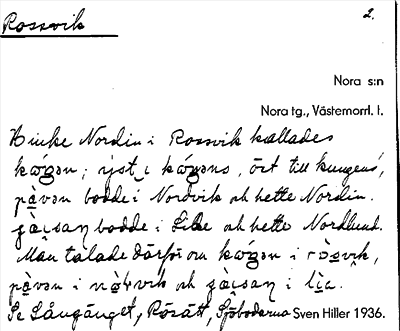 Rossvik
2.
Nora s:n
Nora tg., Västernorrl. l.
Hinke Nordin i Rossvik kallades
kóꞡən; ꞡst i kóꞡəns, öst till kungens',
pàvən bodde i Nordvik och hette Nordin.
bodde i Lide och hette Nordlund.
Man talade därför om kóꞡən i ròsvik,
pàvən i nòrvik och i lìa.
Se Långänget, Rösätt, Sjöbodarna Sven Hiller 1936.